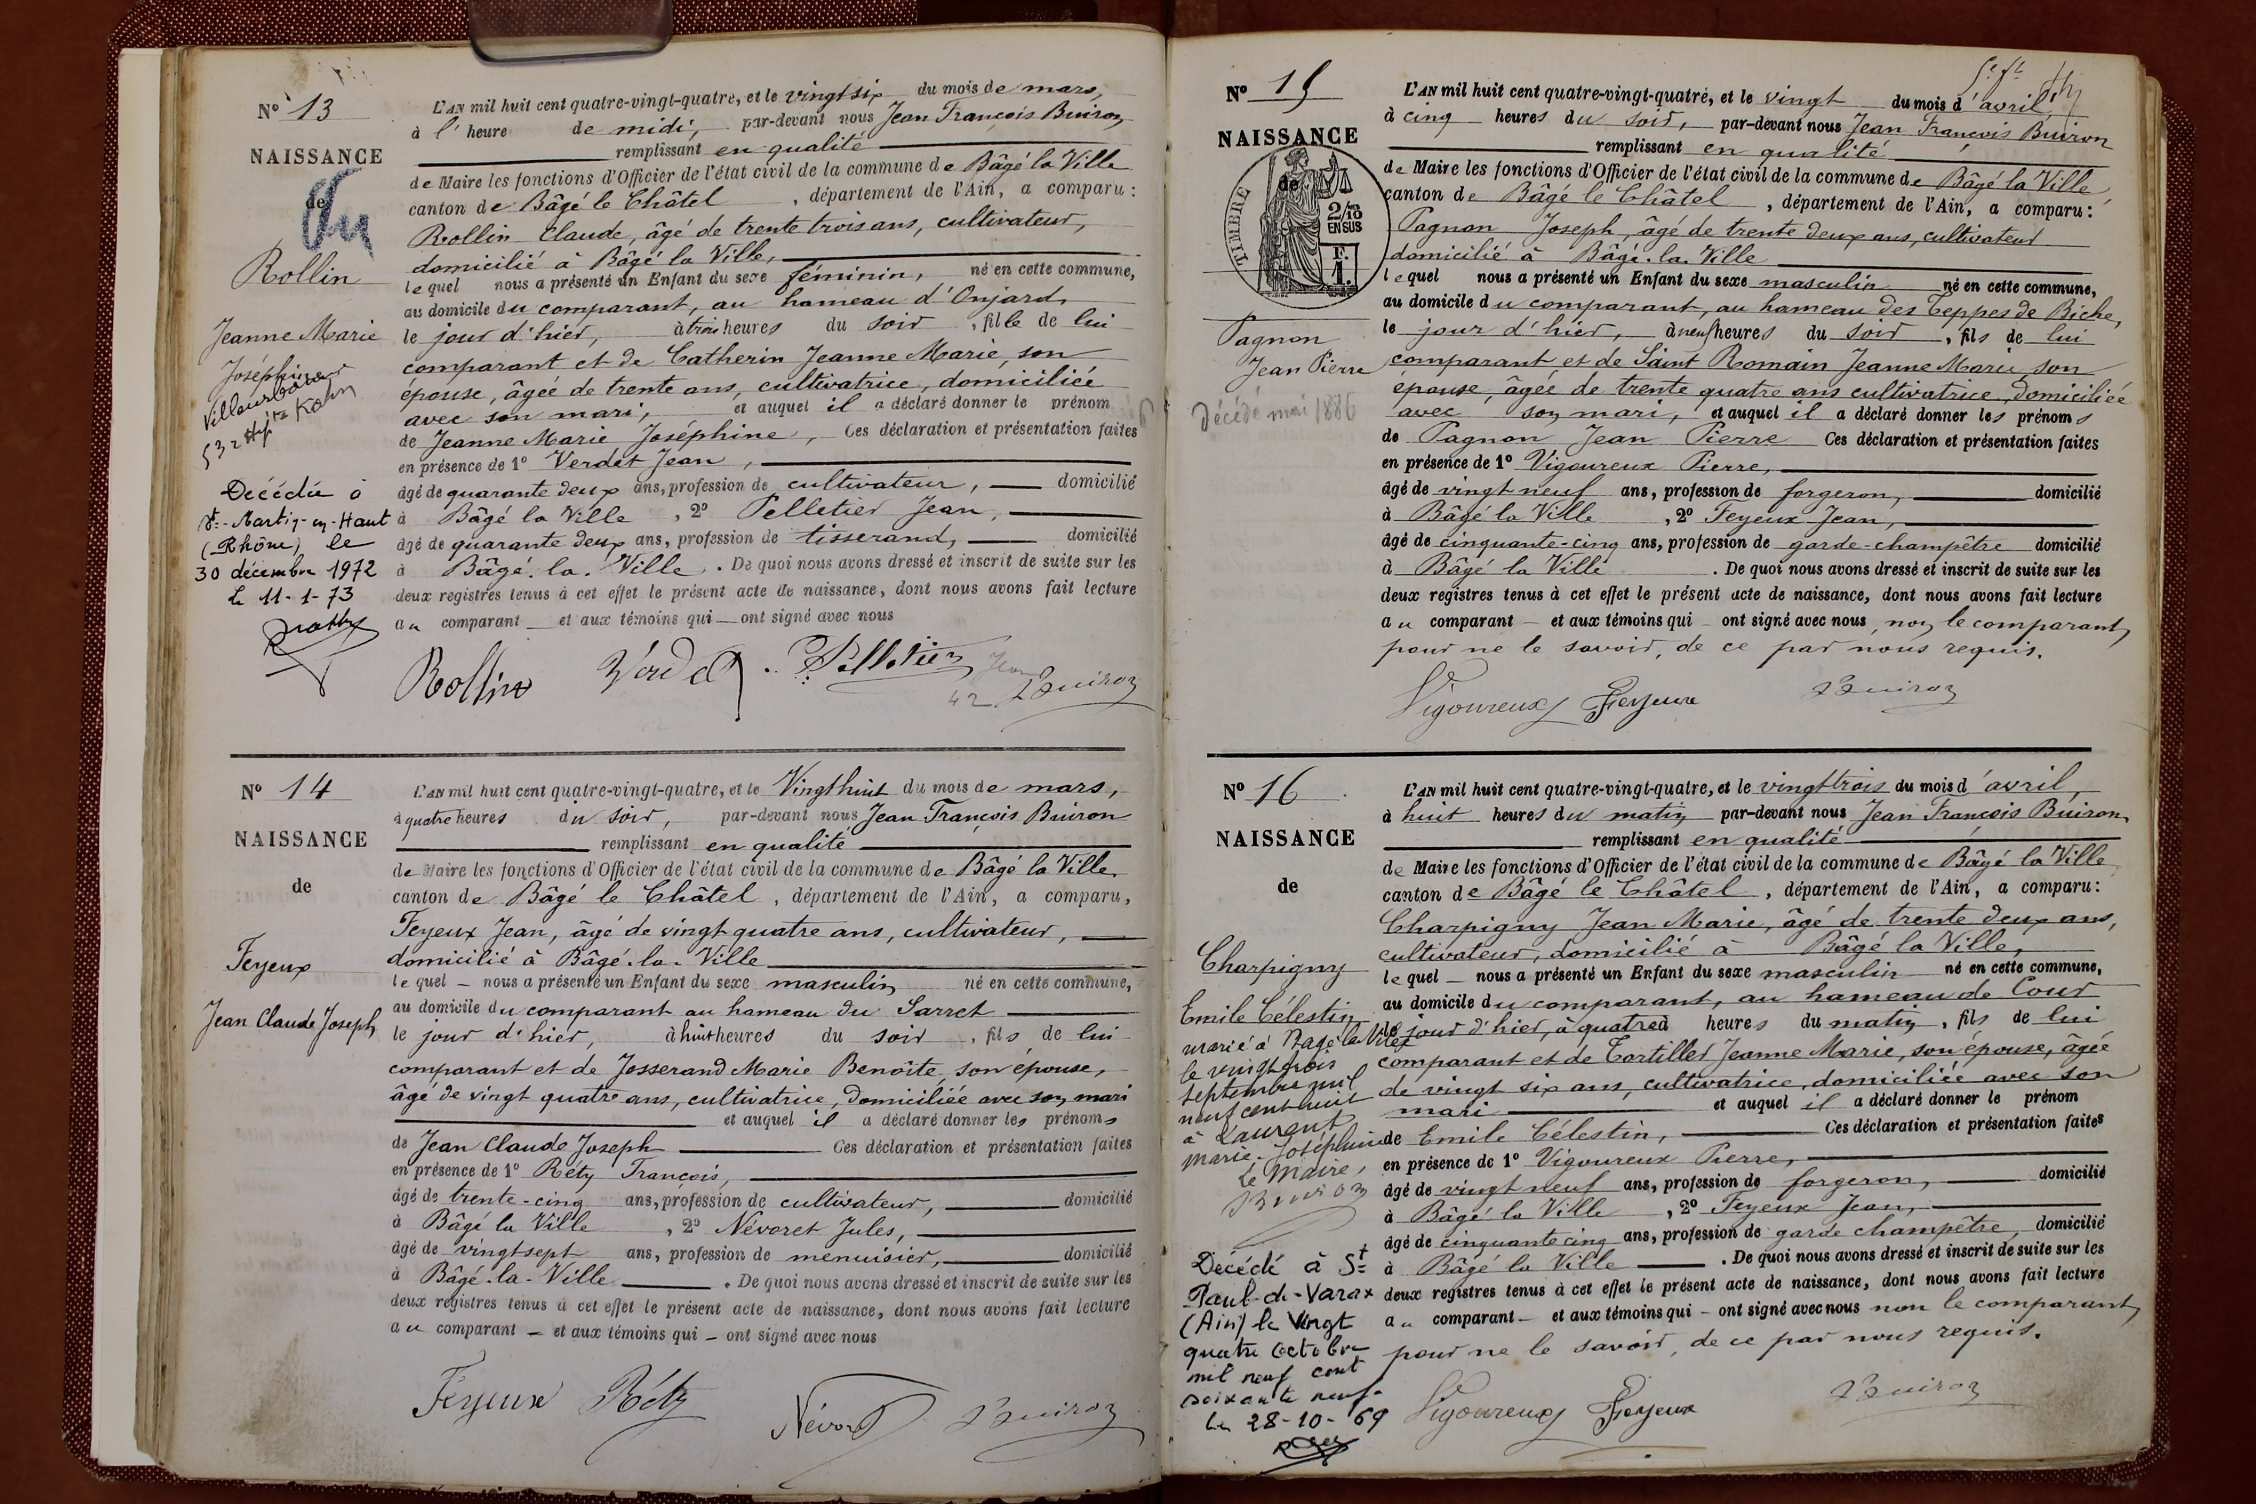 N° 13
NAISSANCE
de
Rollin
Jeanne Marie
Joséphine
Villeurbanne
Décédée à
St-Martin-en-Haut
(Rhône), le
30 décembre 1972
le 11-1-73
L'AN mil huit cent quatre-vingt-quatre, et le vingt six du mois de mars,
à l'heure de midi, par-devant nous Jean François Buiron
remplissant en qualité
de Maire les fonctions d'Officier de l'état civil de la commune de Bâgé la Ville
canton de Bâgé le Châtel, département de l'Ain, a comparu :
Rollin Claude, âgé de trente trois ans, cultivateur,
domicilié à Bâgé la Ville,
lequel nous a présenté un Enfant du sexe féminin, né en cette commune,
au domicile du comparant, au hameau d'Onjard,
le jour d'hier, à trois heures du soir, fille de lui
comparant et de Catherin Jeanne Marie, son
épouse, âgée de trente ans, cultivatrice, domiciliée
avec son mari, et auquel il a déclaré donner le prénom
de Jeanne Marie Joséphine, Ces déclaration et présentation faites
en présence de 1° Verdet Jean,
âgé de quarante deux ans, profession de cultivateur, domicilié
à Bâgé la Ville, 2° Pelletier Jean,
âgé de quarante deux ans, profession de tisserand, domicilié
à Bâgé-la-Ville. De quoi nous avons dressé et inscrit de suite sur les
deux registres tenus à cet effet le présent acte de naissance, dont nous avons fait lecture
au comparant et aux témoins qui ont signé avec nous
Rollin Verdet Pelletier Jean Buiron
42
N° 14
NAISSANCE
de
Feyeux
Jean Claude Joseph
L'AN mil huit cent quatre-vingt-quatre, et le Vingt huit du mois de mars,
à quatre heures du soir, par-devant nous Jean François Buiron
remplissant en qualité
de Maire les fonctions d'Officier de l'état civil de la commune de Bâgé la Ville,
canton de Bâgé le Châtel, département de l'Ain, a comparu,
Feyeux Jean, âgé de vingt quatre ans, cultivateur,
domicilié à Bâgé-la-Ville
lequel nous a présenté un Enfant du sexe masculin né en cette commune,
au domicile du comparant au hameau du Sarret
le jour d'hier, à huit heures du soir, fils de lui
comparant et de Josserand Marie Benoîte, son épouse,
âgé de vingt quatre ans, cultivatrice, domiciliée avec son mari
et auquel il a déclaré donner les prénoms
de Jean Claude Joseph Ces déclaration et présentation faites
en présence de 1° Réty François,
âgé de trente-cinq ans, profession de cultivateur, domicilié
à Bâgé la Ville, 2° Névoret Jules,
âgé de vingt sept ans, profession de menuisier, domicilié
à Bâgé-la-Ville. De quoi nous avons dressé et inscrit de suite sur les
deux registres tenus à cet effet le présent acte de naissance, dont nous avons fait lecture
au comparant et aux témoins qui ont signé avec nous
Feyeux Réty Névoret Buiron
N° 15
NAISSANCE
de
TIMBRE
2/10
EN SUS
F.
1.
Pagnon
Jean Pierre
Décédé mai 1886
L'AN mil huit cent quatre-vingt-quatre, et le vingt du mois d'avril,
à cinq heures du soir, par-devant nous Jean François Buiron
remplissant en qualité
de Maire les fonctions d'Officier de l'état civil de la commune de Bâgé la Ville,
canton de Bâgé le Châtel, département de l'Ain, a comparu :
Pagnon Joseph, âgé de trente deux ans, cultivateur
domicilié à Bâgé-la-Ville
lequel nous a présenté un Enfant du sexe masculin né en cette commune,
au domicile du comparant, au hameau des Teppes de Biche,
le jour d'hier, à neuf heures du soir, fils de lui
comparant et de Saint Romain Jeanne Marie son
épouse, âgée de trente quatre ans cultivatrice, domiciliée
avec son mari, et auquel il a déclaré donner les prénoms
de Pagnon Jean Pierre Ces déclaration et présentation faites
en présence de 1° Vigoureux Pierre,
âgé de vingt neuf ans, profession de forgeron, domicilié
à Bâgé la Ville, 2° Feyeux Jean,
âgé de cinquante-cinq ans, profession de garde-champêtre domicilié
à Bâgé la Ville. De quoi nous avons dressé et inscrit de suite sur les
deux registres tenus à cet effet le présent acte de naissance, dont nous avons fait lecture
au comparant et aux témoins qui ont signé avec nous, non le comparant,
pour ne le savoir, de ce par nous requis.
Vigoureux Feyeux Buiron
N° 16
NAISSANCE
de
Charpigny
Emile Célestin
marié à Bagé la Ville
le vingt trois
septembre mil
neuf cent huit
à Laurent
Marie-Joséphine
le Maire,
Buiron
Décédé à St
Paul-de-Varax
(Ain) le vingt
quatre octobre
mil neuf cent
soixante neuf.
le 28-10-69
L'AN mil huit cent quatre-vingt-quatre, et le vingt trois du mois d'avril,
à huit heures du matin par-devant nous Jean François Buiron,
remplissant en qualité
de Maire les fonctions d'Officier de l'état civil de la commune de Bâgé la Ville,
canton de Bâgé le Châtel, département de l'Ain, a comparu :
Charpigny Jean Marie, âgé de trente deux ans,
cultivateur, domicilié à Bâgé la Ville,
lequel nous a présenté un Enfant du sexe masculin né en cette commune,
au domicile du comparant, au hameau de Cour
le jour d'hier, à quatre à heures du matin, fils de lui
comparant et de Tortiller Jeanne Marie, son épouse, âgée
de vingt six ans, cultivatrice, domiciliée avec son
mari et auquel il a déclaré donner le prénom
de Emile Célestin, Ces déclaration et présentation faites
en présence de 1° Vigoureux Pierre,
âgé de vingt neuf ans, profession de forgeron, domicilié
à Bâgé la Ville, 2° Feyeux Jean,
âgé de cinquante cinq ans, profession de garde champêtre, domicilié
à Bâgé la Ville. De quoi nous avons dressé et inscrit de suite sur les
deux registres tenus à cet effet le présent acte de naissance, dont nous avons fait lecture
au comparant et aux témoins qui ont signé avec nous non le comparant,
pour ne le savoir, de ce par nous requis.
Vigoureux Feyeux Buiron